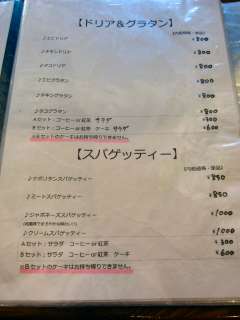 【ドリア&グラタン】
♪エビドリア ¥800
♪チキンドリア ¥800
♪タコドリア ¥800
♪エビグラタン ¥800
♪チキングラタン ¥800
♪タコグラタン ¥800
Aセット：コーヒーor紅茶 サラダ ¥300
Bセット：コーヒーor紅茶 ケーキ サラダ ¥600
※Bセットのケーキはお持ち帰りできません。
【スパゲッティー】
♪ナポリタンスパゲッティー ¥850
♪ミートスパゲッティー ¥850
♪ジャポネーズスパゲッティー ¥1000
♪クリームスパゲッティー ¥1000
Aセット：サラダ コーヒーor紅茶 ¥300
Bセット：サラダ コーヒーor紅茶 ケーキ ¥600
※Bセットのケーキはお持ち帰りできません。